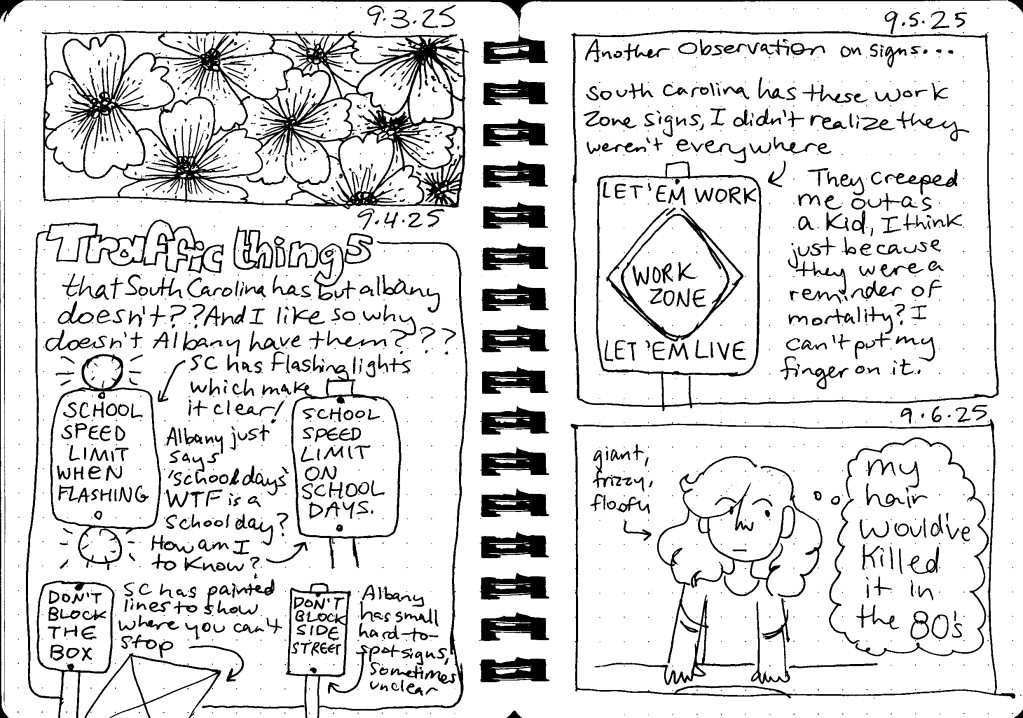 9.3.25
9.4.25
Traffic things
that South Carolina has but albany
doesn't?? And I like so why
doesn't Albany have them???
SC has flashing lights
which make
it clear!
SCHOOL
SPEED
LIMIT
WHEN
FLASHING
Albany just
says
'school days'
WTF is a
school day?
How am I
to know?
SCHOOL
SPEED
LIMIT
ON
SCHOOL
DAYS.
DON'T
BLOCK
THE
BOX
SC has painted
lines to show
where you can't
stop
DON'T
BLOCK
SIDE
STREET
Albany
has small
hard-to-
spot signs,
sometimes
unclear
9.5.25
Another observation on signs...
South Carolina has these work
zone signs, I didn't realize they
weren't everywhere
LET 'EM WORK
WORK
ZONE
LET 'EM LIVE
They creeped
me out as
a kid, I think
just because
they were a
reminder of
mortality? I
can't put my
finger on it.
9.6.25
giant,
frizzy,
floofy
my
hair
would've
killed
it in
the 80's